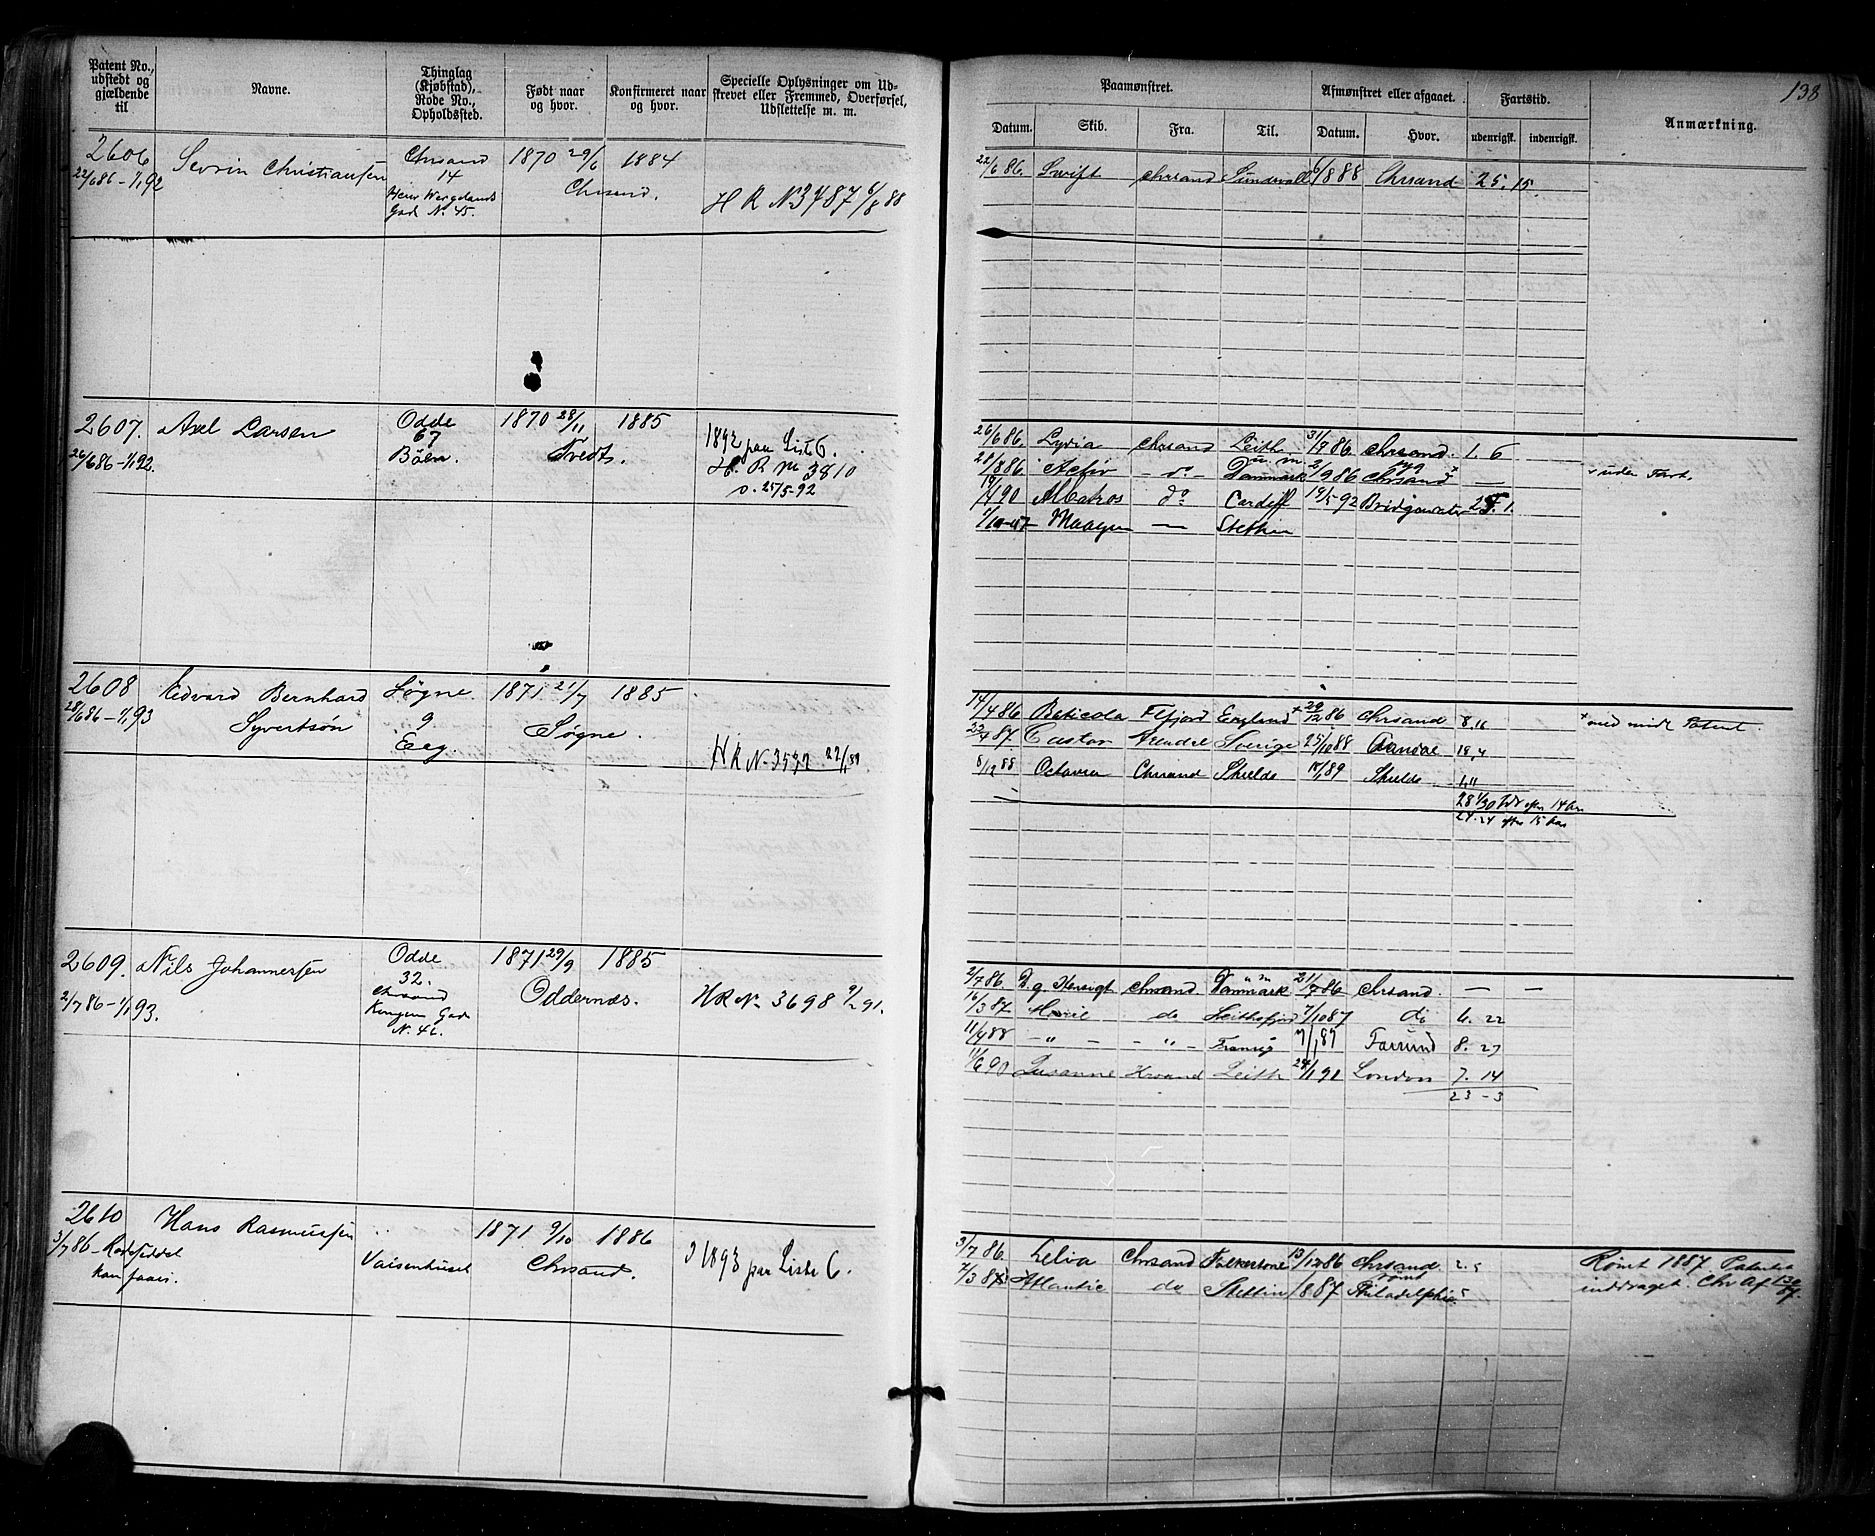 Patent No., udstedt og gjældende til
Navne.
Thinglag (Kjøbstad), Rode No., Opholdssted.
Født naar og hvor.
Konfirmeret naar og hvor.
Specielle Oplysninger om Udskrevet eller Fremmed, Overførsel, Udslettelse m. m.
Paamønstret.
Afmønstret eller afgaaet.
Fartstid.
Anmærkning.
138
Datum. Skib. Fra. Til. Datum. Hvor. udenrigsk. indenrigsk.
2606 Sevrin Christiansen Chrsand 1870 29/6 1884
22/6 86 – 1/1 92 14 Chrsand.
Henr Wergelands
Gade N. 45.
H R N 3487 6/8 88
22/6 86. Swift Chrsand Sundsvall 6/8 88 Chrsand 25. 15.
2607. Axel Larsen Odde 1870 28/11 1885
26/6 86 – 1/1 92. 67 Tvedt.
Båen.
1892 paa Liste 6.
H. R No 3810
d. 25/5-92
26/6 86. Lydia Chrsand Leith 31/7 86 Chrsand. 1. 6
28/8 86 Activ do Danmark 2/9 86 Chrsand — uden Fart.
Albatros do Cardiff 19/5-92 Bridgewater
Maagen — Stettin
2608 Edvard Bernhard Søgne 1871 21/7 1885
28/6 86 – 1/1 93 Syvertsøn 9 Søgne.
Eeg.
H R N. 3532 22/1 89.
14/4 86 Beticola Flfjord England 29/12 86 Chrsand 8,, + med midl Patent.
Gustav Arendal Sverige 25/10 88 18,4
8/12 88 Octavia Chrsand Shields Shields 1,,
efter 14 Aar
24. 24 efter 15 Aar
2609. Nils Johannessen Odde 1871 29/9 1885
2/7 86 – 1/1 93. 32. Oddernæs.
Chrsand
Kongens Gade
N. 46.
H R No 3698 9/2 91.
2/7 86. Chrsand. Danmark 21/7 86 Chrsand. — —
16/3 87 Marie do 7/10 87 do 6. 22
11/4 88 — „ — — „ — Farsund 8. 27
11/6 90 Susanne Krsand Leith 24/1 91 London 7. 14
23 – 3
2610 Hans Rasmussen 1871 9/10 1886
3/7 86 – Rodeseddel Vaisenhuset Chrsand.
kan faaes.
1893 paa Liste 6.
3/7 86. Chrsand Folkestone Chrsand 2. 5 Rømt 1887. Patentet
7/3 87 Atlantic do Stettin /8 87 rømt Philadelphia inddraget.